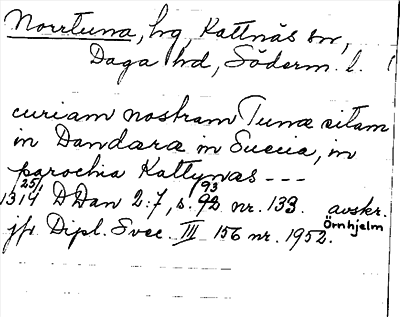 Norrtuna, hg, Kattnäs sn,
Daga hd, Söderm. l.
curiam nostram Tuna sitam
in Dandara in Suecia, in
parochia Kattynas ---
25/1
1314 DDan 2:7, s. 92 93 nr. 133. avskr. Örnhjelm
jfr Dipl. Svec. III 156 nr. 1952.